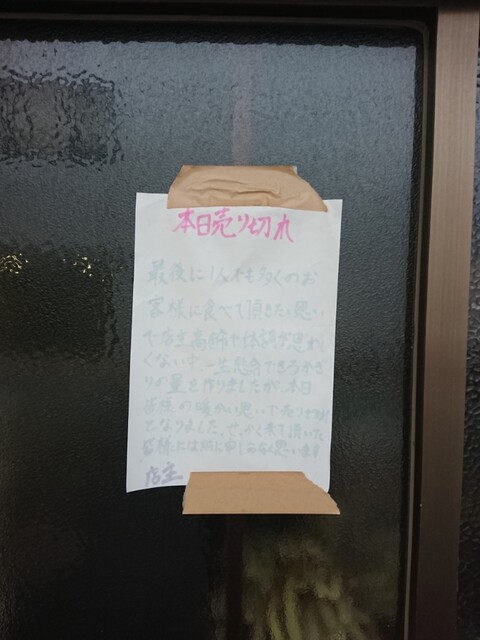 本日売り切れ
最後に1人でも多くのお
客様に食べて頂きたい思い
で店主高齢で体調が思わし
くない中 一生懸命できるかぎ
りの量を作りましたが 本日
皆様の暖かい思いで売り切れ
となりました。せっかく来て頂いた
客様には誠に申し訳なく思います
店主